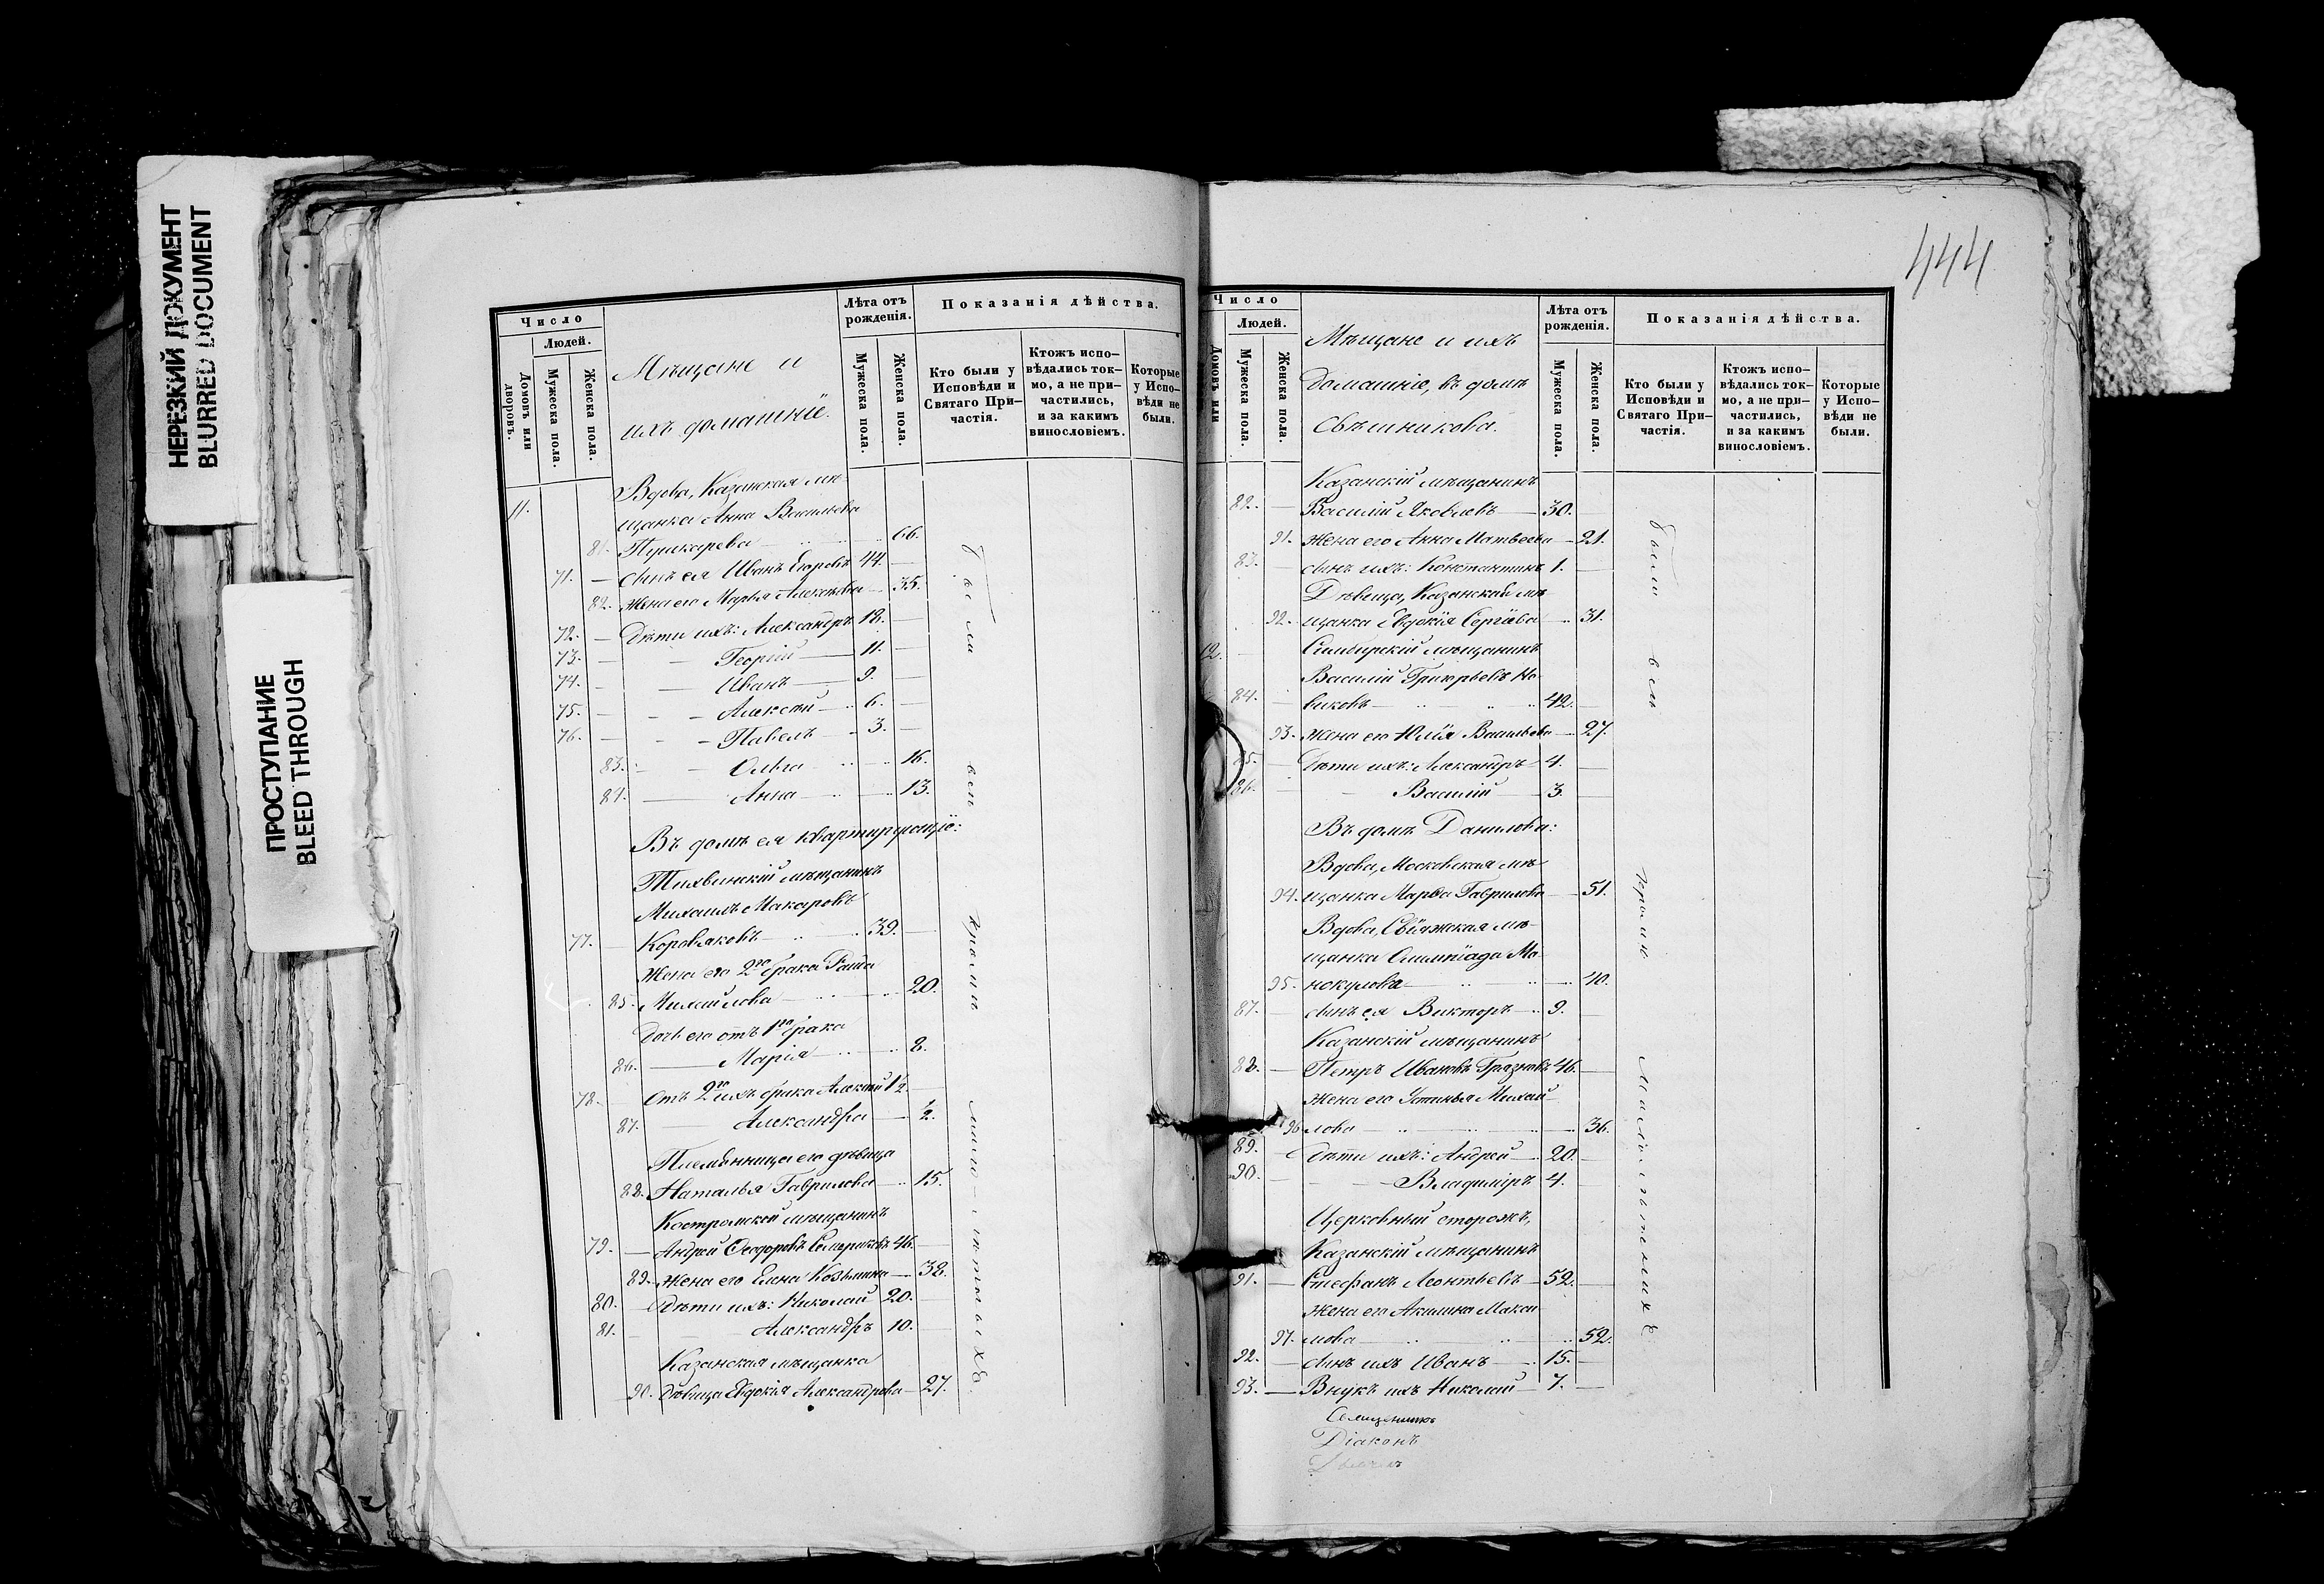 НЕРЕЗКИЙ ДОКУМЕНТ
BLURRED DOCUMENT
ПРОСТУПАНИЕ
BLEED THROUGH
Число
Людей.
Домовъ или дворовъ.
Мужеска пола.
Женска пола.
Мѣщане и
ихъ домашніе.
Лѣта отъ рожденія.
Мужеска пола.
Женска пола.
Показанія дѣйства.
Кто были у Исповѣди и Святаго При-частія.
Ктожъ испо-вѣдались ток-мо, а не при-частились, и за какимъ винословіемъ.
Которые у Испо-вѣди не были.
11. Вдова, Казанская мѣ-
щанка Анна Васильева
81. Пушкарева 66.
71. — Сынъ ея Иванъ Егоровъ 44.
82. Жена его Марья Алексѣева 35.
72. — Дѣти ихъ: Александръ 18.
73. — Георгій 11.
74. — Иванъ 9.
75. — Алексѣй 6.
76. — Павелъ 3.
83. Ольга 16.
84. Анна 13.
Въ домѣ ея квартирующіе:
Тихвинскій мѣщанинъ
Михаилъ Макаровъ
77. — Коровяковъ 39.
Жена его 2го брака Раиса
85. Михайлова 20.
Дочь его отъ 1го брака
86. Марія 8.
78. Отъ 2го ихъ брака Алексѣй 1½
87. Александра ½.
Племянница его дѣвица
88. Наталья Гаврилова 15.
Костромской мѣщанинъ
79. — Андрей Ѳеодоровъ 46.
89. Жена его Елена Козьмина 38.
80. — Дѣти ихъ: Николай 20.
81. — Александръ 10.
Казанская мѣщанка
90. Дѣвица Евдокія Александрова 27.
были всѣ кромѣ мало-лѣтныхъ.
444
Число
Людей.
Домовъ или
Мужеска пола.
Женска пола.
Мѣщане и ихъ
домашніе, въ домѣ
Свѣшникова.
Лѣта отъ рожденія.
Мужеска пола.
Женска пола.
Показанія дѣйства.
Кто были у Исповѣди и Святаго При-частія.
Ктожъ испо-вѣдались ток-мо, а не при-частились, и за какимъ винословіемъ.
Которые у Испо-вѣди не были.
Казанскій мѣщанинъ
82. — Василій Яковлевъ 30.
91. Жена его Анна Матвеева 21.
83. — Сынъ ихъ: Константинъ 1.
Дѣвица, Казанская мѣ-
92. щанка Евдокія Сергіева 31.
12. Симбирскій мѣщанинъ
Василій Григорьевъ Но-
84. виковъ 42.
93. Жена его Юлія Васильева 27.
85. — Дѣти ихъ: Александръ 4.
86. — Василій 3.
Въ домѣ Данилова:
Вдова, Московская мѣ-
94. щанка Марѳа Гаврилова 51.
Вдова, Свіяжская мѣ-
щанка Олимпіада Мо-
95. нокулова 40.
87. — Сынъ ея Викторъ 9.
Казанскій мѣщанинъ
88. — Петръ Ивановъ Грязновъ 46.
Жена его Устинья Михай-
96. лова 36.
89. — Дѣти ихъ: Андрей 20.
90. — Владиміръ 4.
Церковный сторожъ,
Казанскій мѣщанинъ
91. — Стефанъ Леонтьевъ 52.
Жена его Акилина Макси-
97. мова 52.
92. — Сынъ ихъ Иванъ 15.
93. — Внукъ ихъ Николай 7.
были всѣ кромѣ малолѣтнихъ
Священникъ
Діаконъ